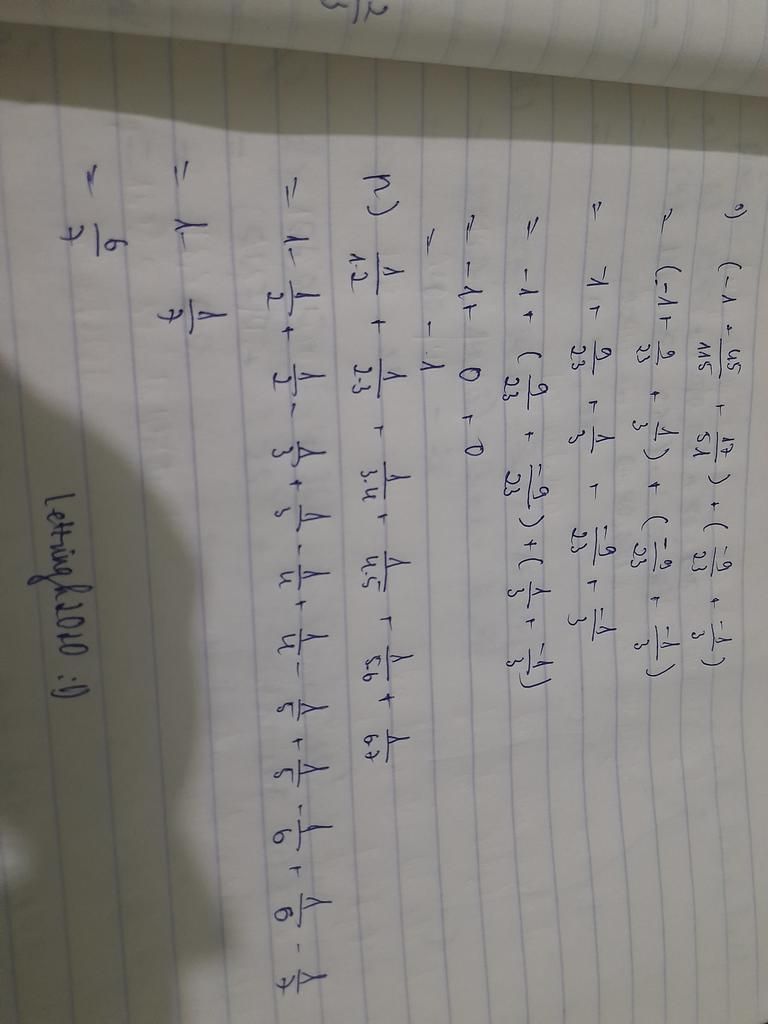 2/3
g) (-1 + 45/115 + 17/51) + (-9/23 + -1/3)
= (-1 + 9/23 + 1/3) + (-9/23 + -1/3)
= -1 + 9/23 + 1/3 + -9/23 + -1/3
= -1 + (9/23 + -9/23) + (1/3 + -1/3)
= -1 + 0 + 0
= -1
n) 1/1.2 + 1/2.3 + 1/3.4 + 1/4.5 + 1/5.6 + 1/6.7
= 1 - 1/2 + 1/2 - 1/3 + 1/3 - 1/4 + 1/4 - 1/5 + 1/5 - 1/6 + 1/6 - 1/7
= 1 - 1/7
= 6/7